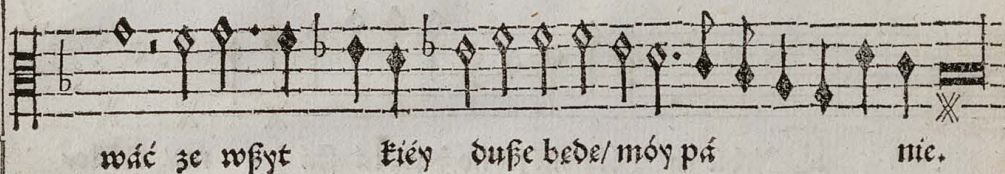 wáć ze wßyt kiéy duße bede/ móy pá nie.